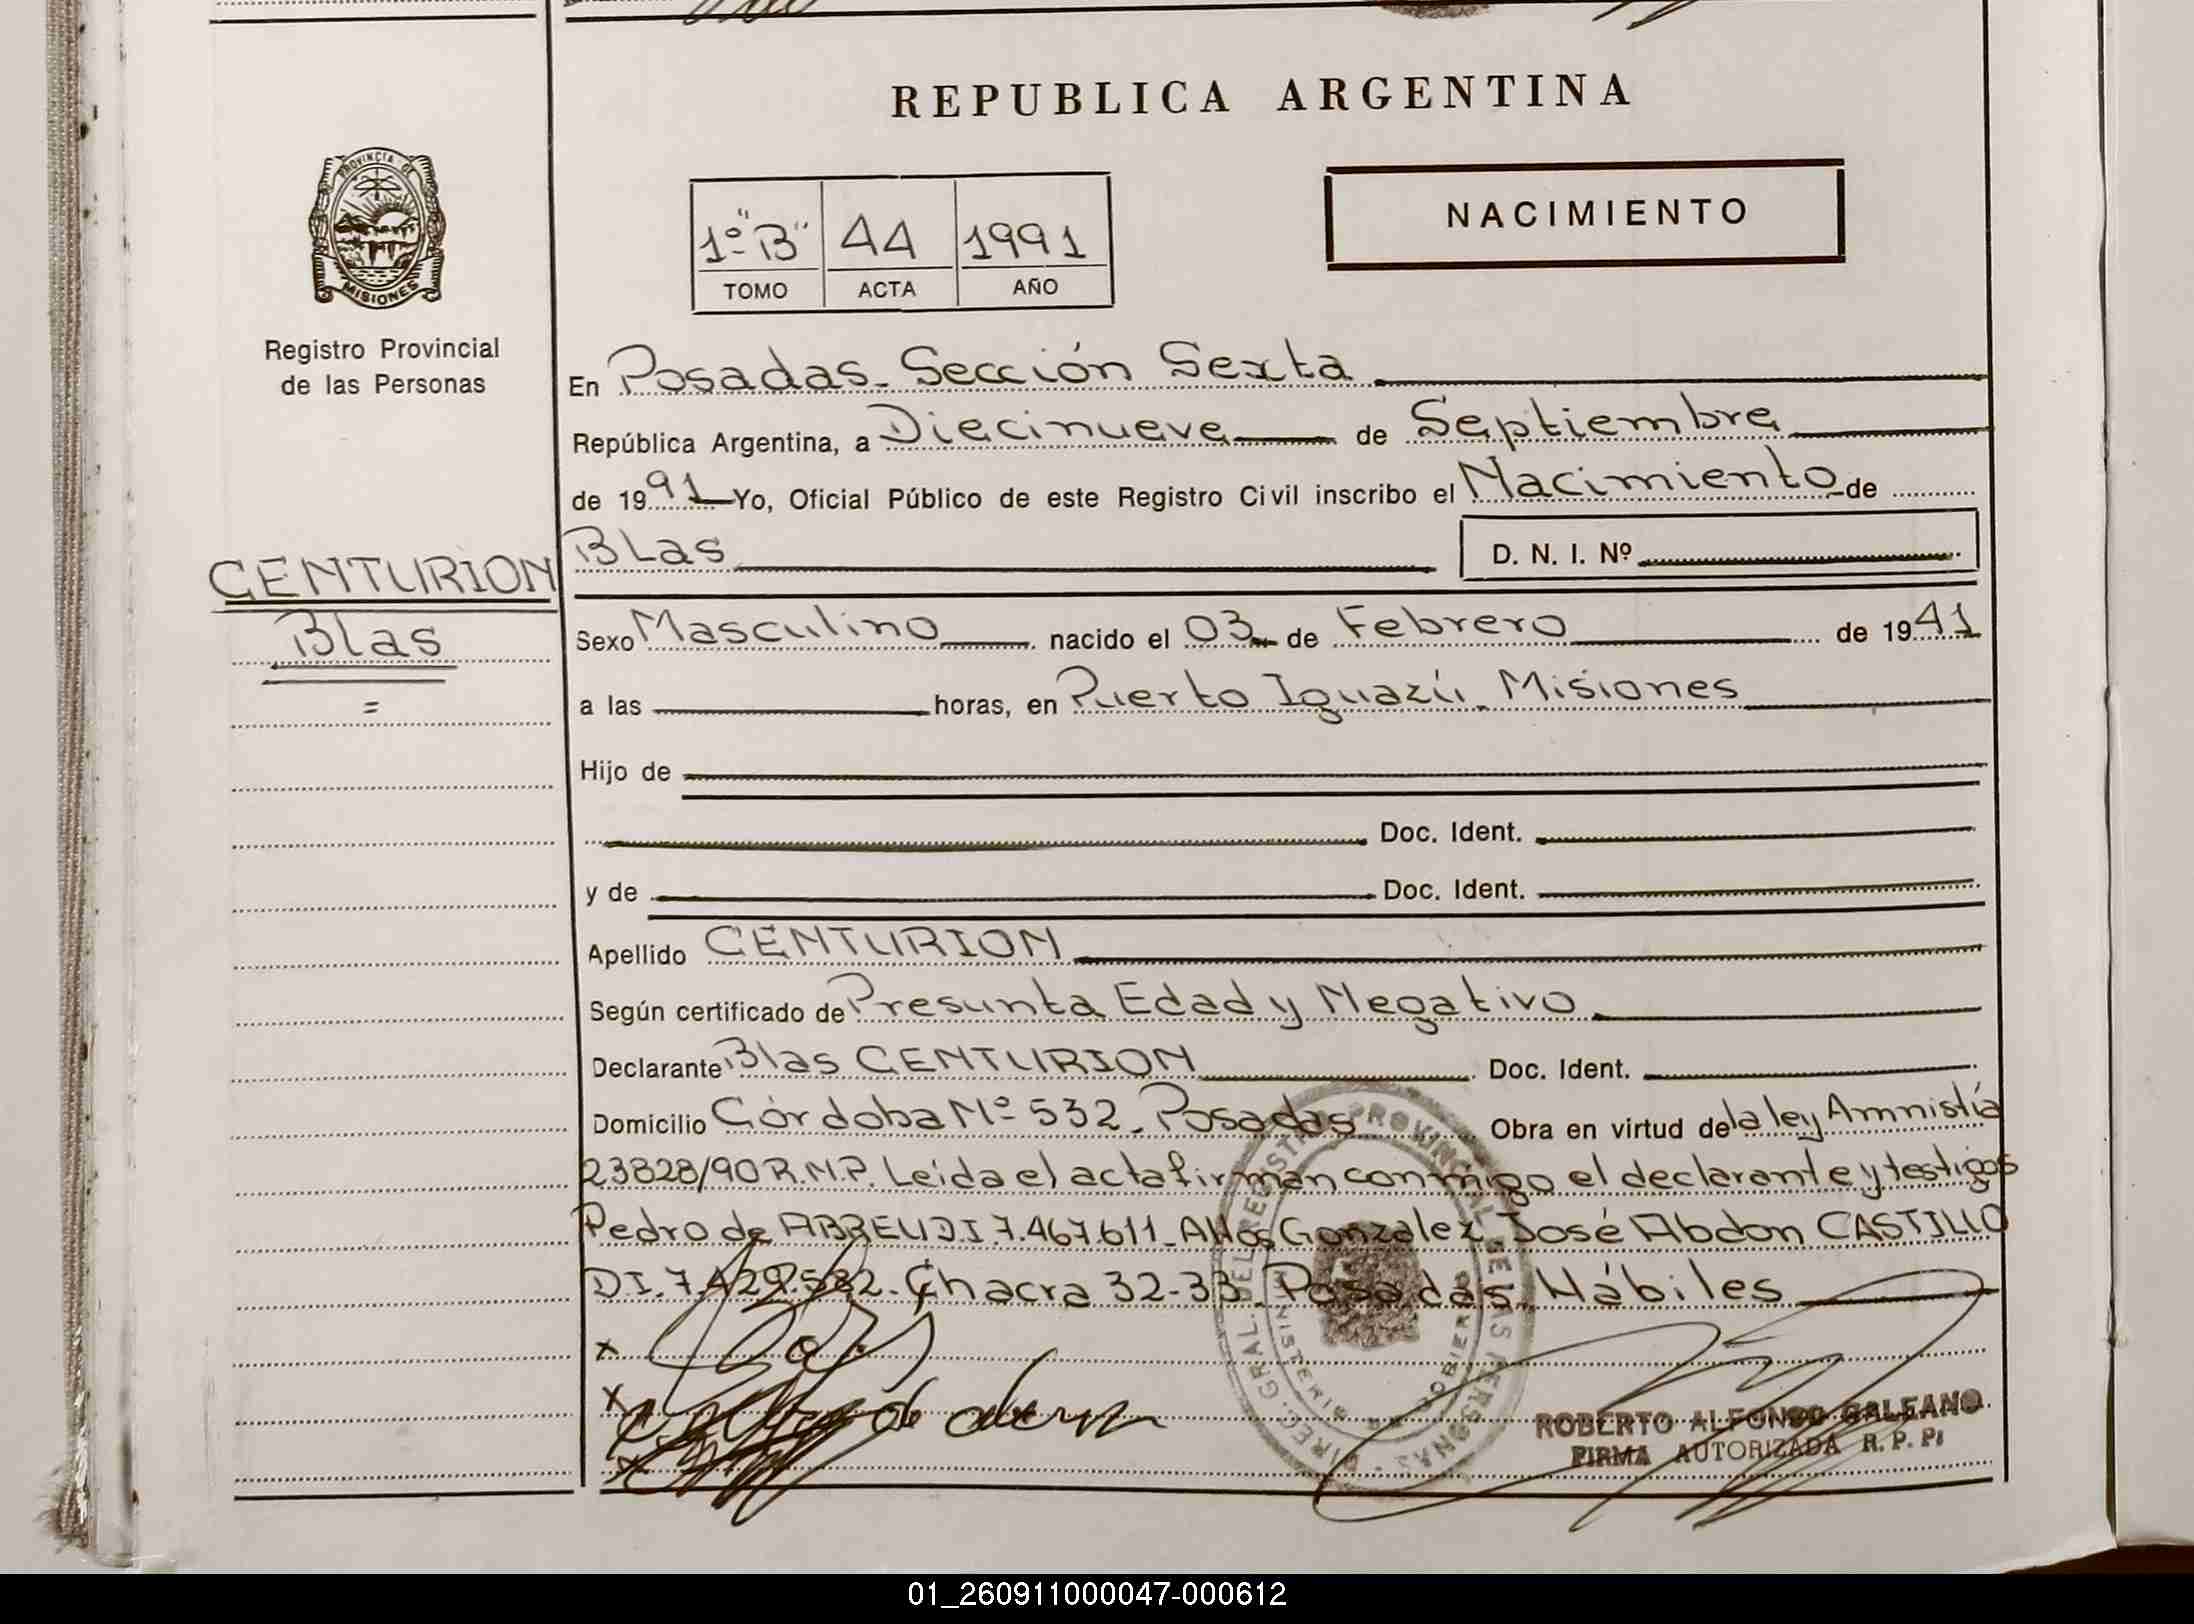 REPUBLICA ARGENTINA
PROVINCIA DE
MISIONES
Registro Provincial
de las Personas
1º "B" 44 1991
TOMO ACTA AÑO
NACIMIENTO
En Posadas - Sección Sexta
República Argentina, a Diecinueve de Septiembre
de 1991 Yo, Oficial Público de este Registro Civil inscribo el Nacimiento de
CENTURION
Blas
=
BLas D. N. I. Nº
Sexo Masculino nacido el 03 de Febrero de 1941
a las horas, en Puerto Iguazú - Misiones
Hijo de
Doc. Ident.
y de Doc. Ident.
Apellido CENTURION
Según certificado de Presunta Edad y Negativo
Declarante Blas CENTURION Doc. Ident.
Domicilio Córdoba Nº 532 - Posadas Obra en virtud de la ley Amnistía
23828/90 R.N.P. Leída el acta firman conmigo el declarante y testigos
Pedro de ABREU D.I 7.467.611 - Gonzalez José Abdon CASTILLO
DI. 7.429.532 - Chacra 32-33 - Posadas - Hábiles
x
x
x
DIREC. GRAL. DEL REGISTRO PROVINCIAL DE LAS PERSONAS
MINISTERIO DE GOBIERNO
ROBERTO ALFONSO GALEANO
FIRMA AUTORIZADA R. P. P.
01_260911000047-000612